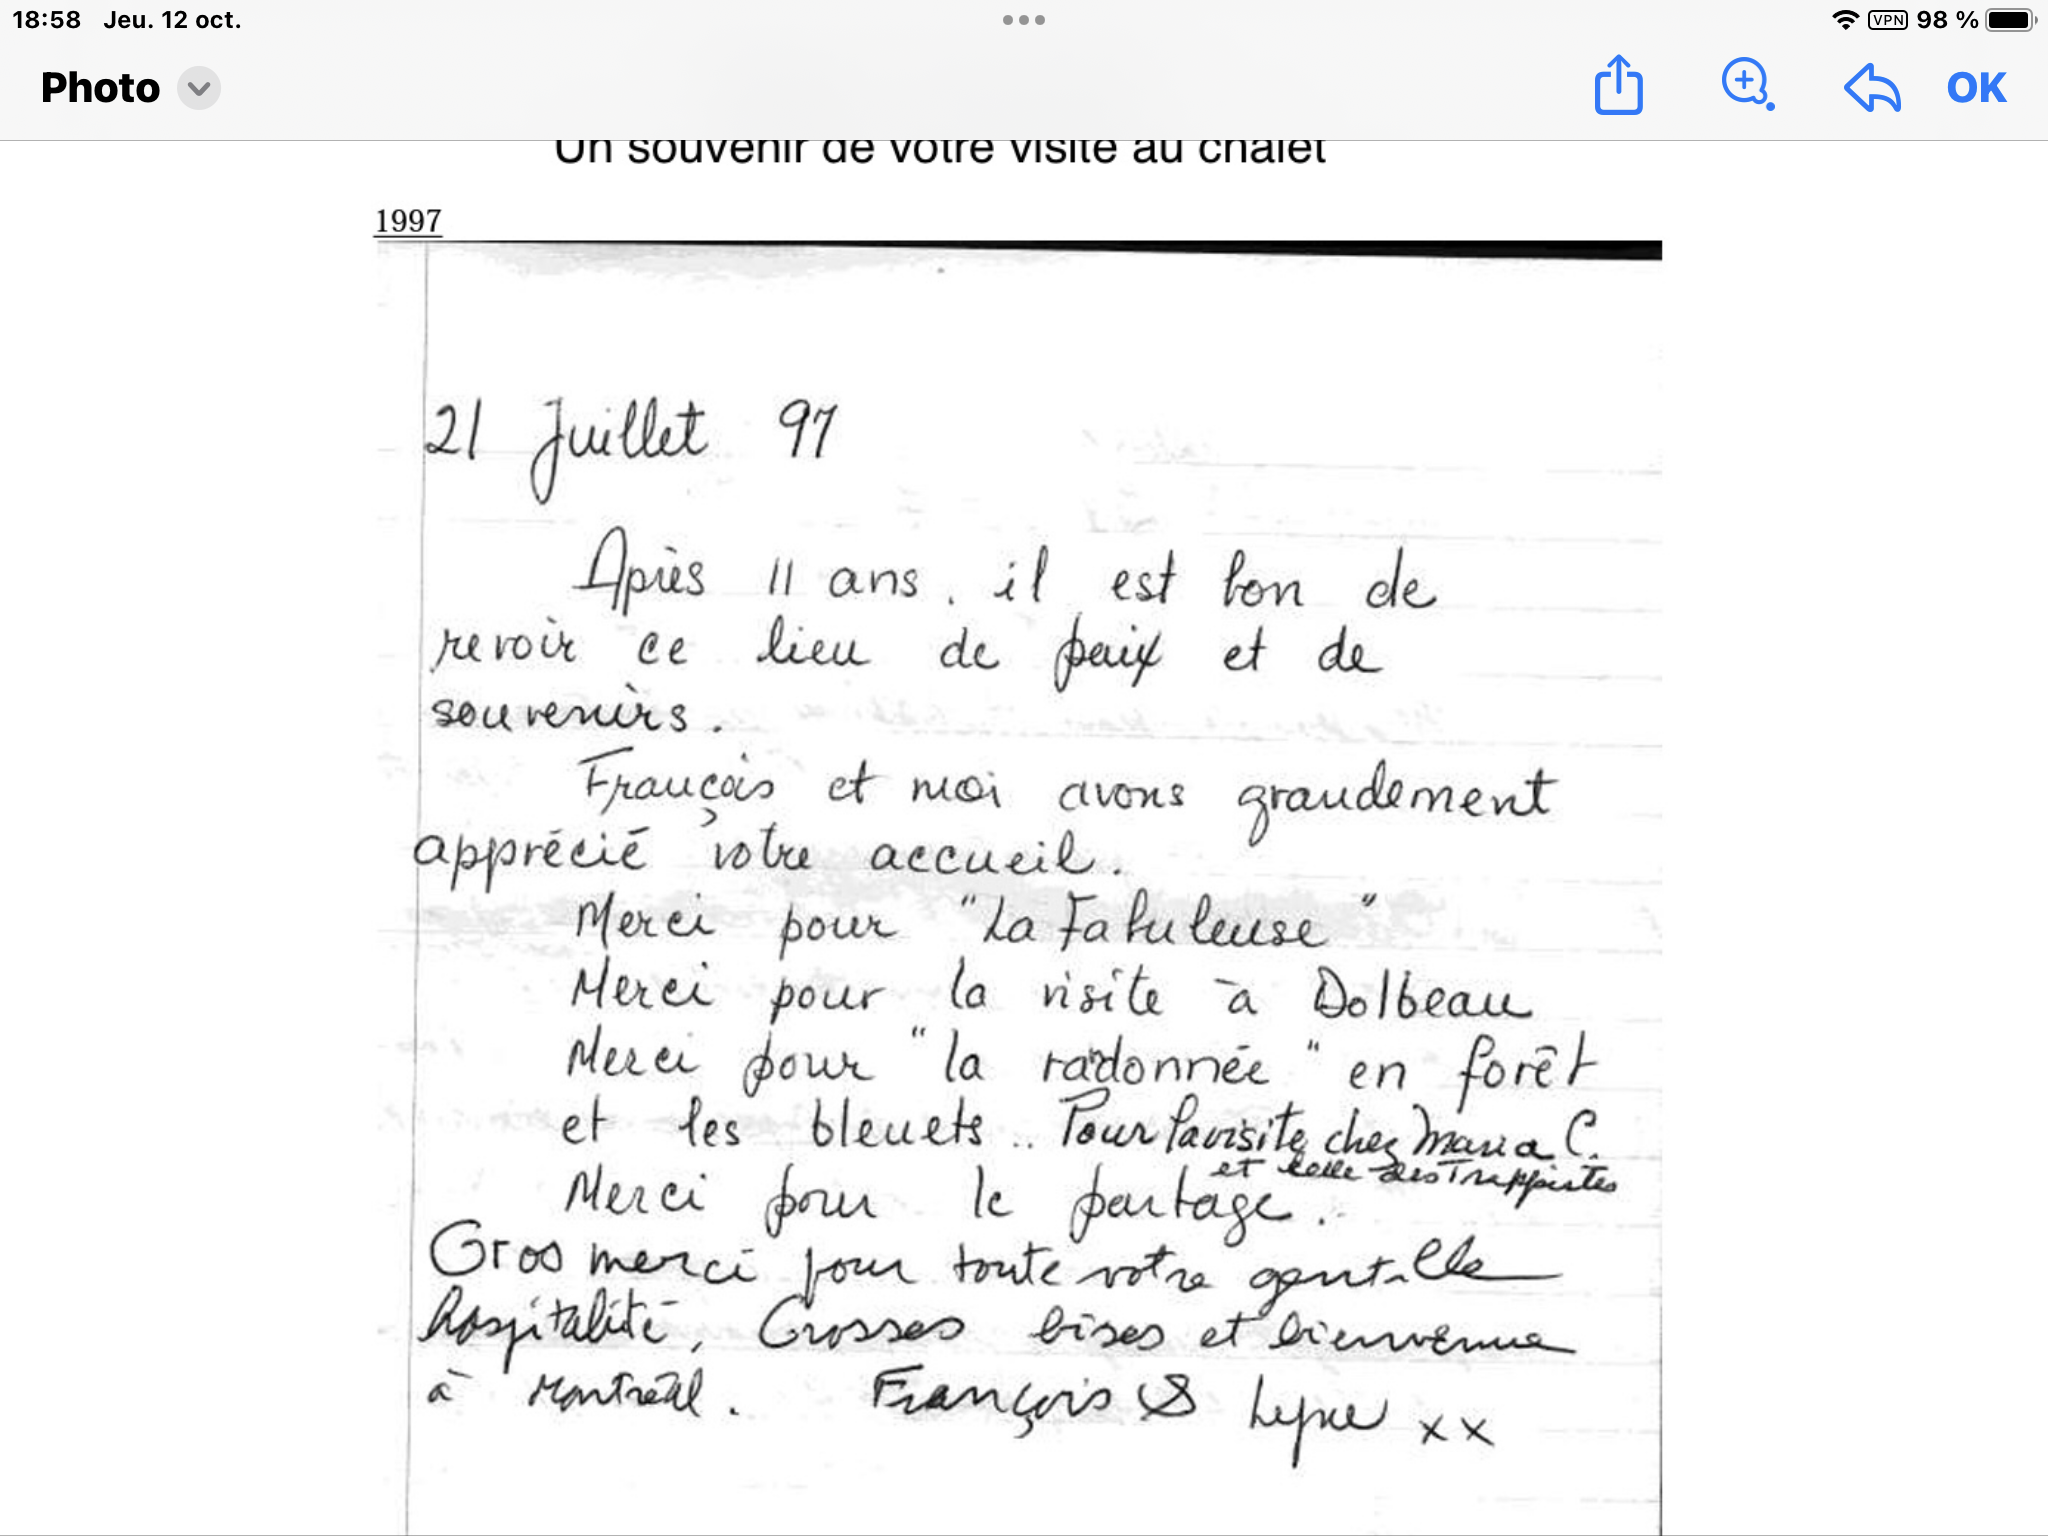 18:58 Jeu. 12 oct.
VPN 98 %
Photo
OK
Un souvenir de votre visite au chalet
1997
21 Juillet 97
Après 11 ans, il est bon de
revoir ce lieu de paix et de
souvenirs.
François et moi avons grandement
apprécié votre accueil.
Merci pour "La Fabuleuse"
Merci pour la visite à Dolbeau
Merci pour "la radonnée" en forêt
et les bleuets.. Pour la visite chez Maria C.
et celle des Trappistes
Merci pour le partage..
Gros merci pour toute votre gentille
hospitalité, Grosses bises et bienvenue
à Montréal. François & Lyne xx